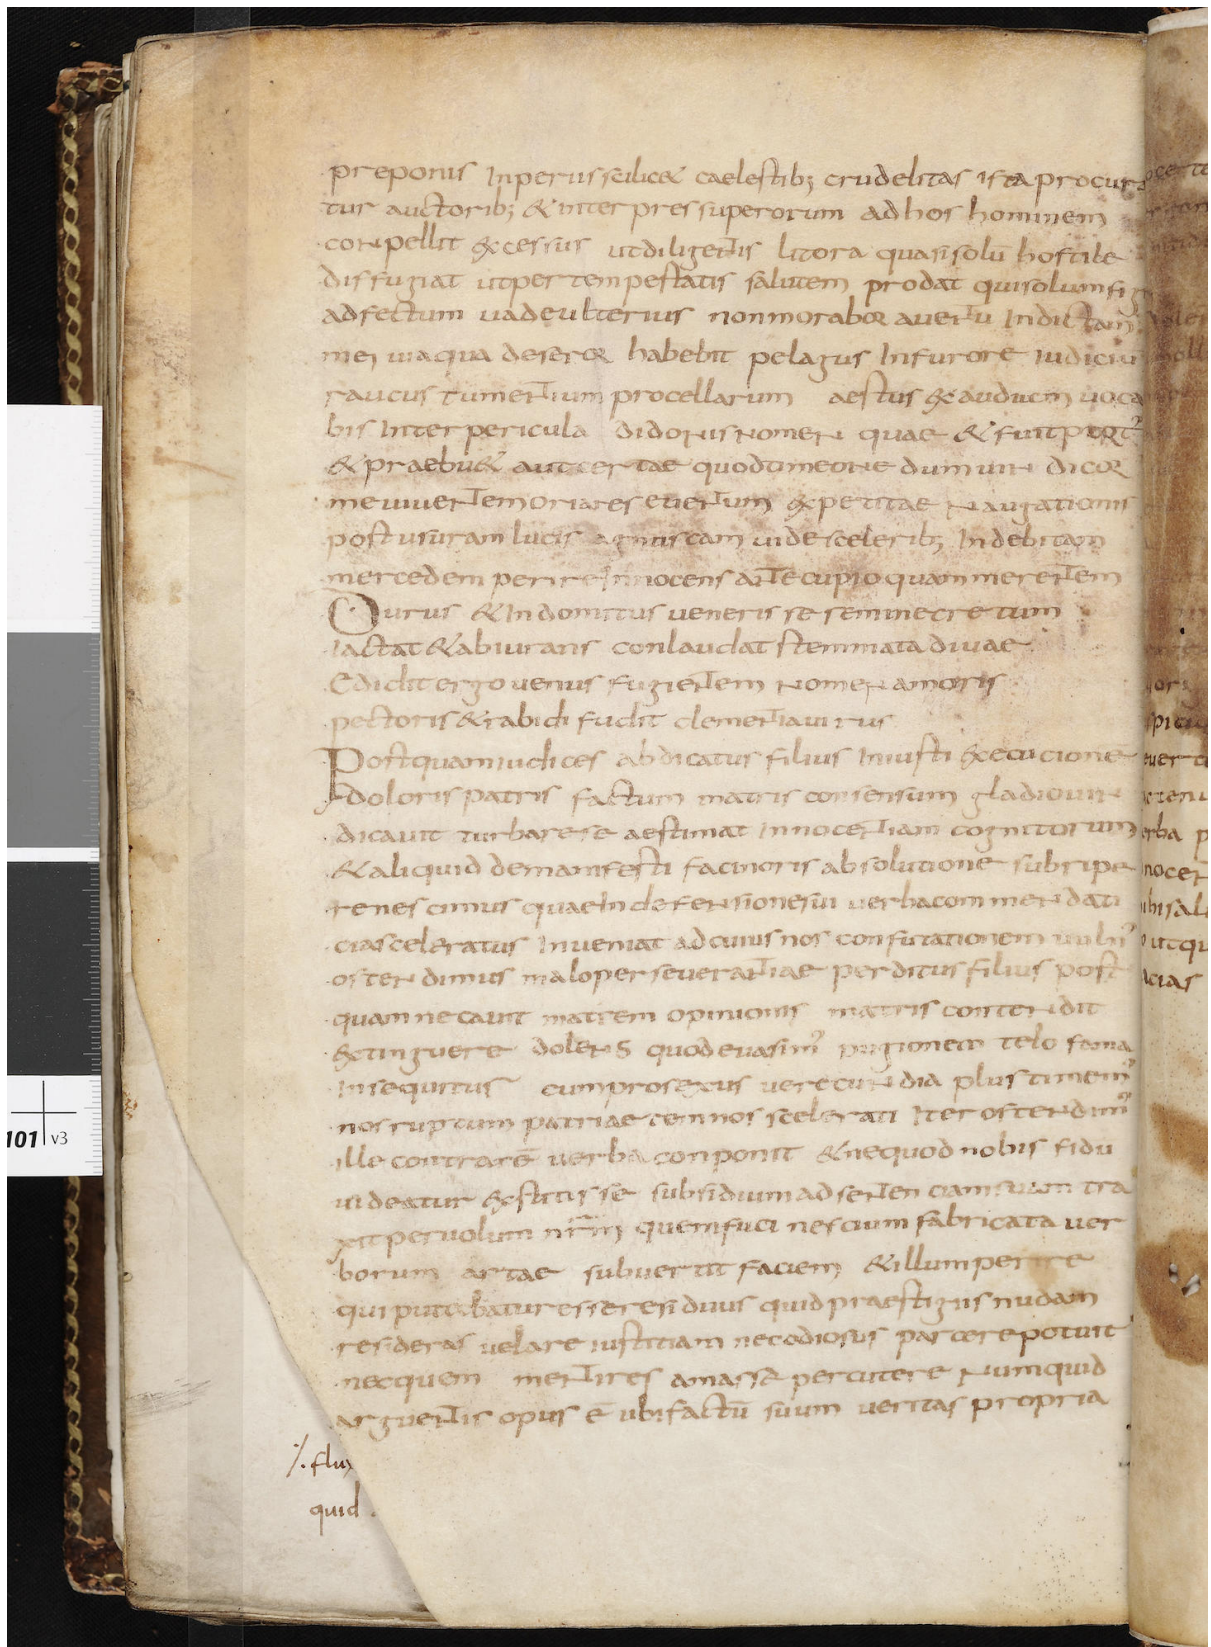 preponis Inperusscilic& caelestib; crudelitas ista procura
tur auctorib; & interpres superorum ad hos hominem
conpellit excessus utdiligentis litora quasisolū hostile
diffugiat utpertempestatis salutem prodat quisolumfig
adfectum uadeulterius nonmorabor auentū Indictam
mei uiaqua deseror habebit pelagus Infurore iudiciū
raucus tumentium procellarum aestus exaudiam uoca
bis Inter pericula didonisnomen quae & fuit
& praebu& autcertae quodtimeone dumuin dicor
meuiuentemoriareseuentum expetitae nauigationis
post usuram lucis agnuscam uidesceleribꝫ Indebitam
mercedem perireInnocens antecupioquammerentem
Durus & Indomitus ueneris se seminecretum
Iactat & abiurans conlaudat stemmata diuae
Edidit ergo uenus fugientem nomen amoris
pectoris & rabidi fudit clementia uirus
Postquamiudices abdicatus filius Iniusti execucione
doloris patris factum matris consensum gladiouin
dicauit turbarese aestimat Innocentiam cognitorum
& aliquid demanifesti facinoris absolutione subripe
renescimus quaeIndefensionesui uerbacommendati
ciasceleratus Inueniat adcuiusnos confutationem
ostendimus maloperseuerantiae perditus filius post
quamnecauit matrem opinionis matris contendit
extinguere dolens quodeuasim' pugionem telo fama
Insequitus cumprosexus uerecundia plustimem'
nosruptum patriae temnos scelerati Iter ostendim'
ille contrarē uerba conponit & nequod nobis fidu
uideatur exstitisse subsidium adsentenciamsuam tra
xitperuolum nr̄m quemfuci nescium fabricata uer
borum artae subuertit faciem & illumperire
quiputabaturesseresiduus quidpraestigiisnudam
resideras uelare iustitiam necodiosus parcere potuit
necquem mentires amass& percutere numquid
arguentis opus ē ubifactū suum ueritas propria
⁒ flux
quid